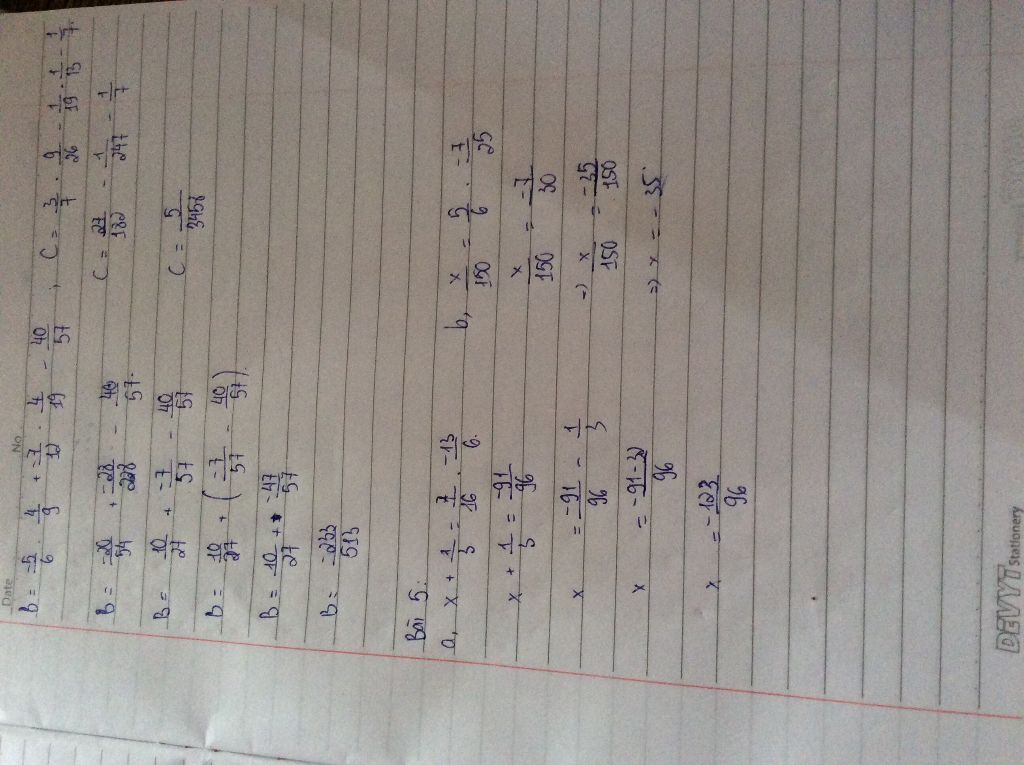 Date No
B = -5/6 . 4/9 + -7/12 . 4/19 - 40/57 ; C = 3/7 . 9/26 - 1/19 . 1/13 - 1/7
B = -20/54 + -28/228 - 40/57. C = 27/182 - 1/247 - 1/7
B = 10/27 + -7/57 - 40/57 C = 5/3458
B = 10/27 + (-7/57 - 40/57).
B = 10/27 + -47/57
B = -233/513
Bài 5:
a, x + 1/3 = 7/16 . -13/6. b, x/150 = 5/6 . -7/25
x + 1/3 = -91/96 x/150 = -7/30
x = -91/96 - 1/3 => x/150 = -35/150
x = -91-32/96 => x = -35
x = -123/96
DEVYT Stationery